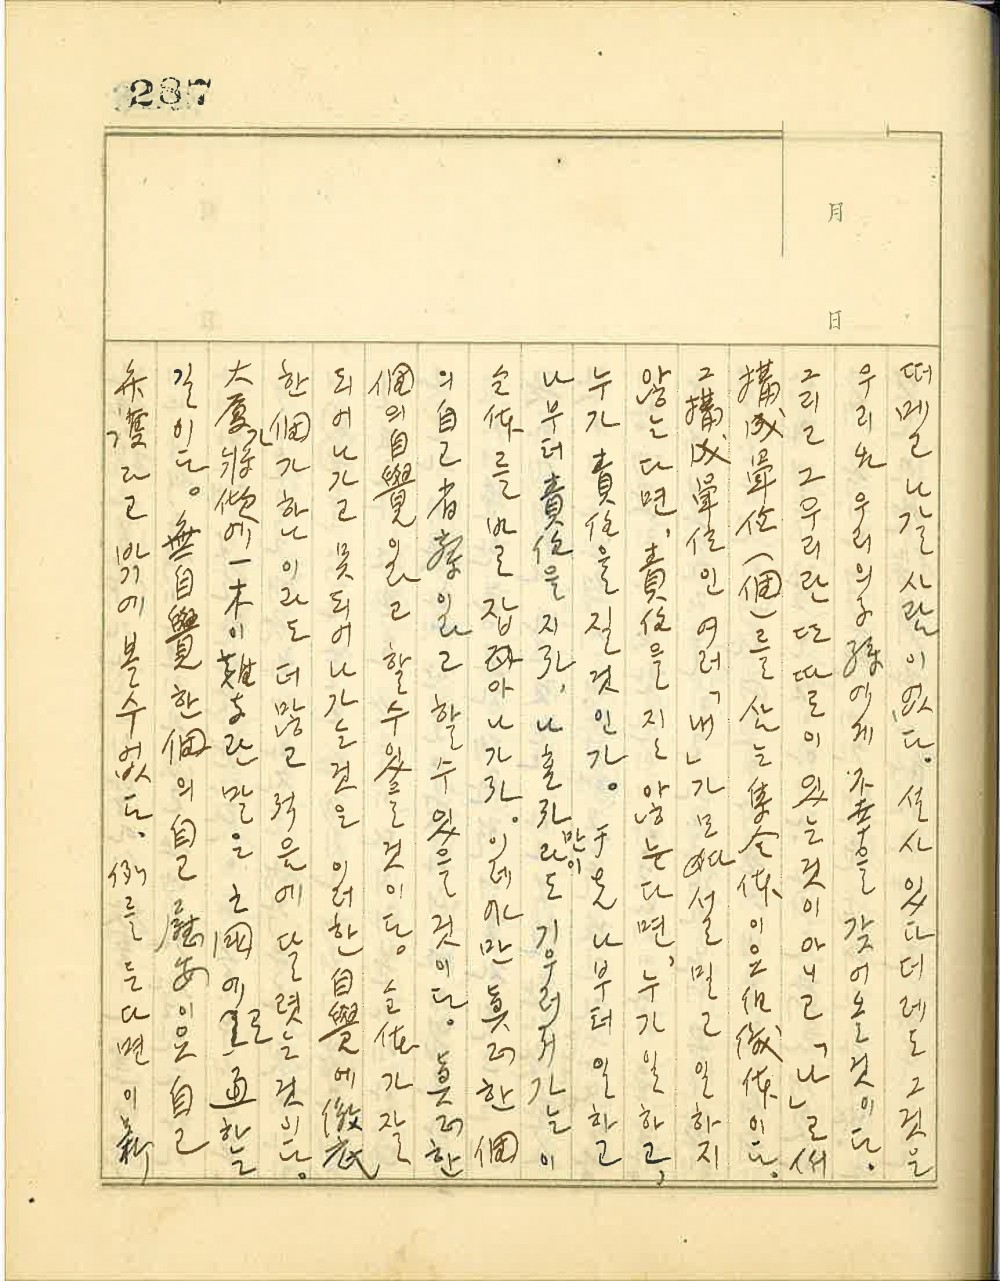 287
月
日
떠메일 나갈 사람이 없다. 설사 있다더레도 그것은
우리와 우리의 子孫에게 不幸을 갖어올것이다.
그리고 그 우리란 또 따로이 있는것이 아니고 「나」로써
構成單位(個)를 삼는 集合体이오 組織体이다.
그 構成單位인 여러「내」가 모다 설밀고 일하지
않는다면, 責任을 지는 않는다면, 누가 일하고,
누가 責任을 질것인가. 于先 나부터 일하고
나부터 責任을 지라, 나 홀라만이라도 기우러져가는 이
全体를 바로잡아 나가라. 이레야만 眞正한 個
의 自己省察이라고 할수있을 것이다. 眞正한
個의 自覺이라고 할수있을 것이다. 全体가 잘
되어나가고 못되어나가는것은 이러한 自覺에 徹底
한 個가 하나이라도 더 많고 적음에 달렷는것이다.
大廈가 將傾에 一木이 難支란 말은 亡國에로 通하는
길이다. 無自覺한 個의 自己慰安이오 自己
弁護라고 밖에 볼수없다. 例를 든다면 이 新